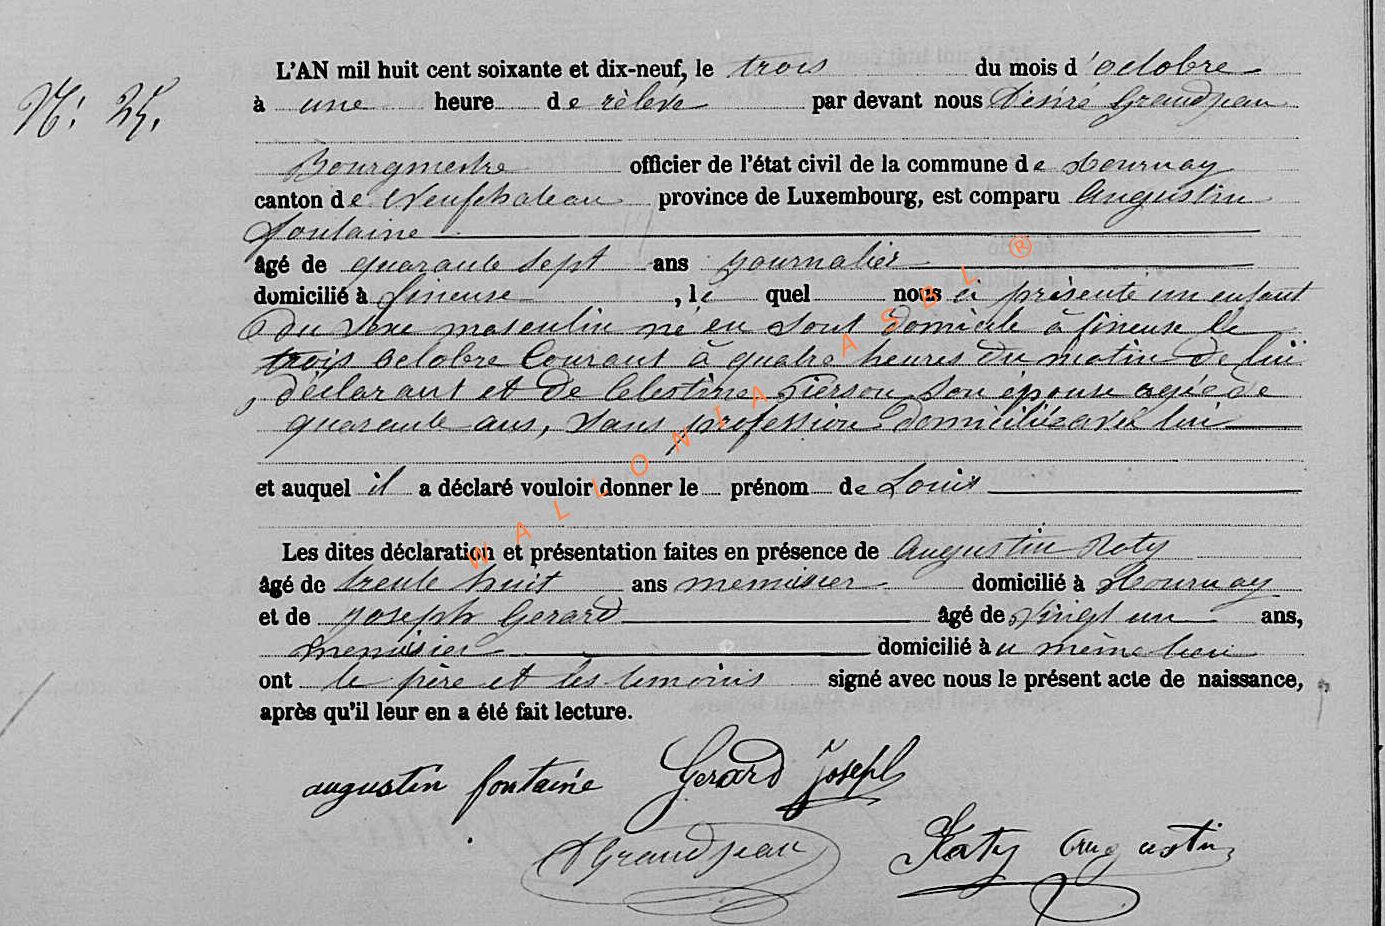 N: 25.
L'AN mil huit cent soixante et dix-neuf, le trois du mois d'octobre
à une heure de rélevé par devant nous Désiré Grandjean
Bourgmestre officier de l'état civil de la commune de Tournay
canton de Neufchateau province de Luxembourg, est comparu Augustin
fontaine
âgé de quarante sept ans journalier
domicilié à fineuse, le quel nous a présenté un enfant
du sexe masculin né en sont domicile à fineuse le
trois octobre Courant à quatre heures du matin de lui
déclarant et de Celestine Pierson son épouse agée de
quarante ans, sans profession domiciliée avec lui
et auquel il a déclaré vouloir donner le prénom de Louis
Les dites déclaration et présentation faites en présence de Augustin Roty
âgé de trente huit ans menuisier domicilié à Tournay
et de Joseph Gerard âgé de vingt un ans,
menuisier domicilié au même lieu
ont le père et les temoins signé avec nous le présent acte de naissance,
après qu'il leur en a été fait lecture.
augustin fontaine Gerard Joseph
DGrandjean Augustin
WALLONIA ASBL ®